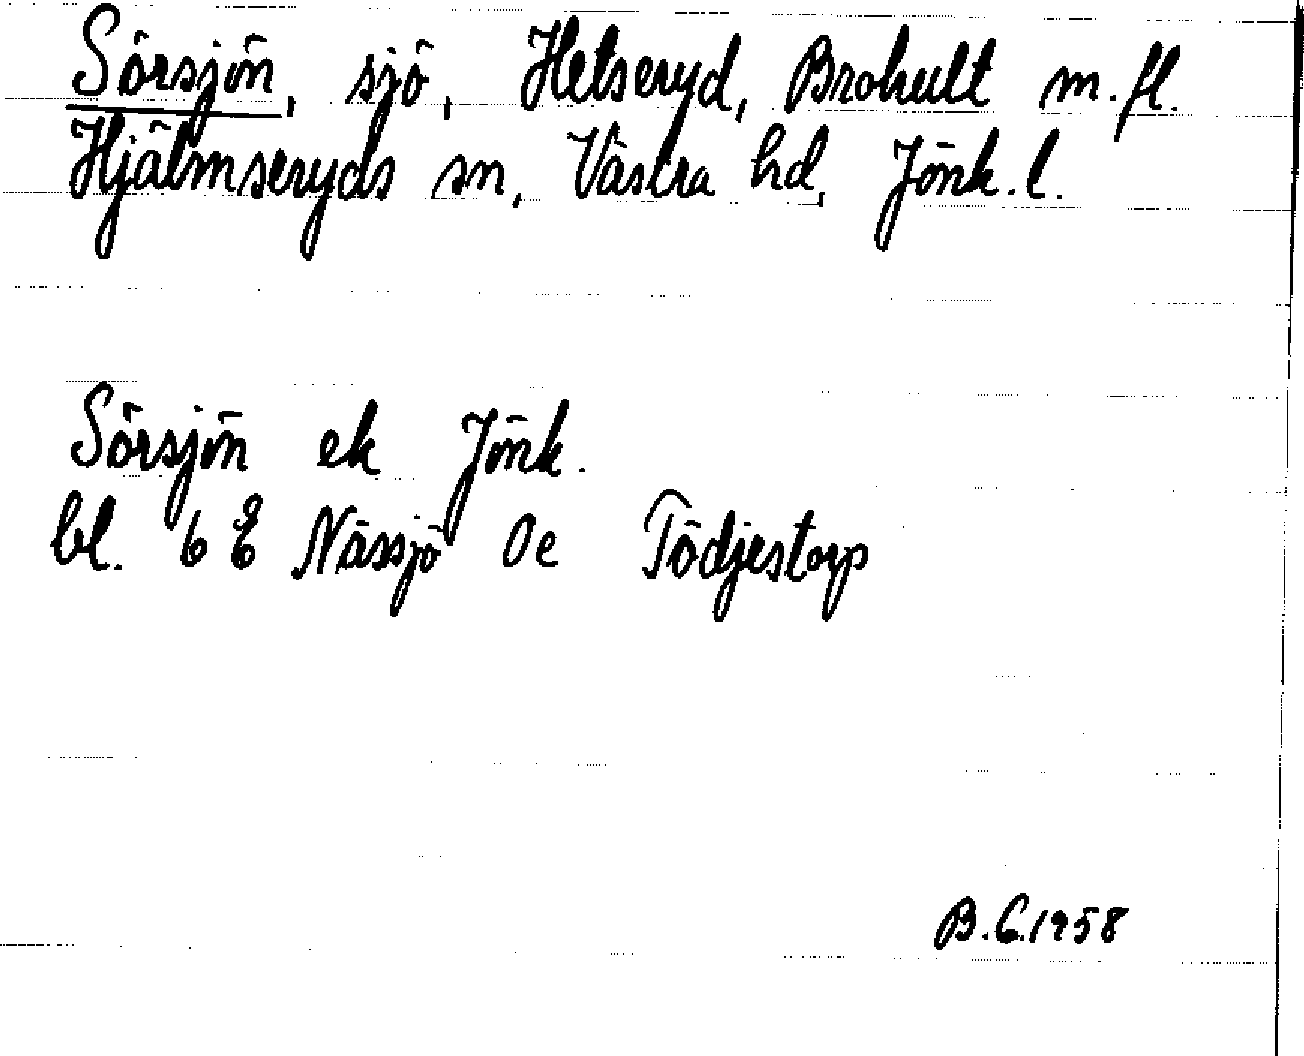 Sörsjön, sjö, Hetseryd, Brohult m.fl.
Hjälmseryds sn, Västra hd, Jönk.l.
Sörsjön ek Jönk.
bl. 6 E Nässjö 0e Tödjestorp
B.G.1958